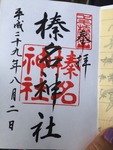 奉拝
榛名神社
榛名神社
平成二十九年八月二日